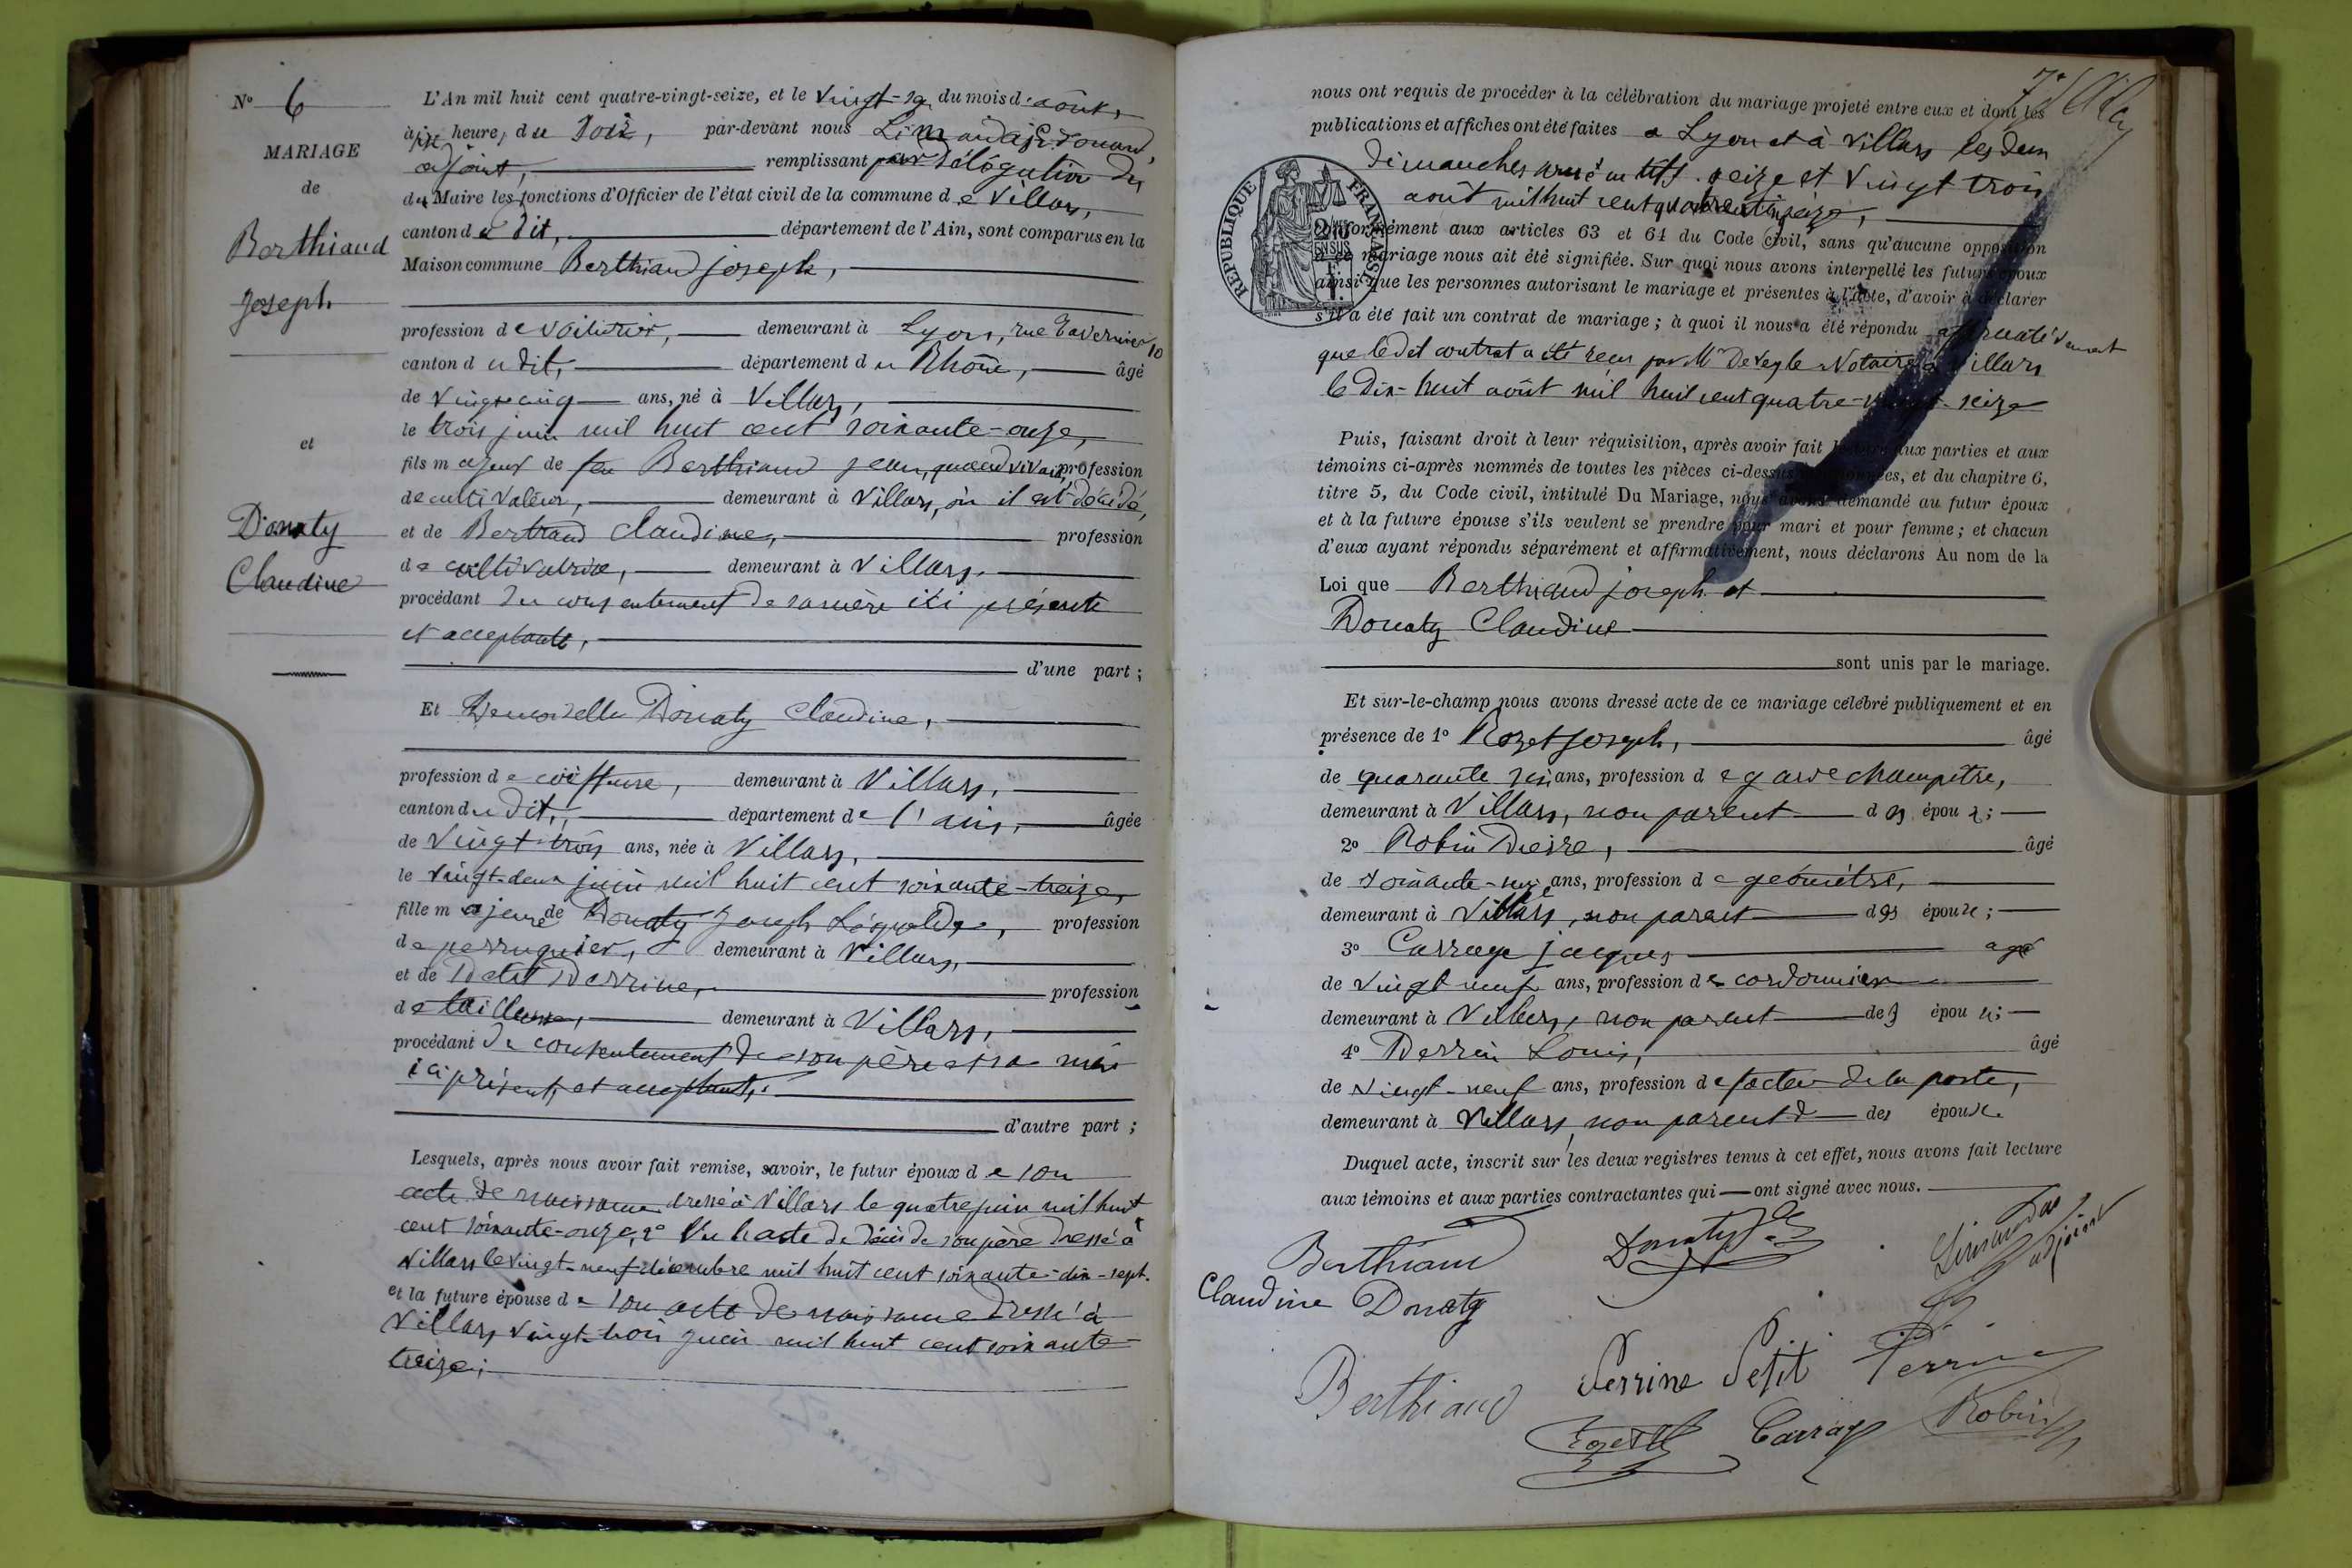 N° 6
MARIAGE
de
Berthiaud
Joseph
et
Donaty
Claudine
L'An mil huit cent quatre-vingt-seize, et le vingt-        du mois d'août,
à        heure, du soir, par-devant nous        Edouard,
adjoint, remplissant par délégation du
du Maire les fonctions d'Officier de l'état civil de la commune de Villars,
canton du dit, département de l'Ain, sont comparus en la
Maison commune Berthiaud joseph,
profession de voiturier, demeurant à Lyon, rue Tavernier 10
canton du dit, département du Rhône, âgé
de vingt cinq ans, né à Villars,
le trois juin mil huit cent soixante-onze,
fils majeur de feu Berthiaud jean, quand vivait, profession
de cultivateur, demeurant à Villars, où il est décédé,
et de Bertrand Claudine, profession
de cultivatrice, demeurant à Villars,
procédant du consentement de sa mère ici présente
et acceptante,
d'une part ;
Et Demoiselle Donaty Claudine,
profession de coiffeuse, demeurant à Villars,
canton du dit, département de l'ain, âgée
de vingt-trois ans, née à Villars,
le vingt-deux juin mil huit cent soixante-treize,
fille majeure de Donaty Joseph Léopold, profession
de perruquier, demeurant à Villars,
et de Petit Perrine, profession
de tailleuse, demeurant à Villars,
procédant du consentement de son père et sa mère
ici présents et acceptants,
d'autre part ;
Lesquels, après nous avoir fait remise, savoir, le futur époux de son
acte de naissance dressé à Villars le quatre juin mil huit
cent soixante-onze, 2° Vu l'acte de décès de son père dressé à
Villars le vingt-neuf décembre mil huit cent soixante-dix-sept.
et la future épouse de son acte de naissance dressé à
Villars vingt-trois juin mil huit cent soixante-
treize ;
nous ont requis de procéder à la célébration du mariage projeté entre eux et dont les
publications et affiches ont été faites à Lyon et à Villars les deux
dimanches        seize et vingt trois
août mil huit cent quatre vingt seize,
RÉPUBLIQUE FRANÇAISE
conformément aux articles 63 et 64 du Code civil, sans qu'aucune opposition
à ce mariage nous ait été signifiée. Sur quoi nous avons interpellé les futurs époux
ainsi que les personnes autorisant le mariage et présentes à l'acte, d'avoir à déclarer
s'il a été fait un contrat de mariage ; à quoi il nous a été répondu affirmativement
que le dit contrat a été reçu par Mr        Notaire à Villars
le dix-huit août mil huit cent quatre-vingt-seize
Puis, faisant droit à leur réquisition, après avoir fait lecture aux parties et aux
témoins ci-après nommés de toutes les pièces ci-dessus mentionnées, et du chapitre 6,
titre 5, du Code civil, intitulé Du Mariage, nous avons demandé au futur époux
et à la future épouse s'ils veulent se prendre pour mari et pour femme ; et chacun
d'eux ayant répondu séparément et affirmativement, nous déclarons Au nom de la
Loi que Berthiaud joseph et
Donaty Claudine
sont unis par le mariage.
Et sur-le-champ nous avons dressé acte de ce mariage célébré publiquement et en
présence de 1° Rozet Joseph, âgé
de quarante six ans, profession de garde champêtre,
demeurant à Villars, non parent des époux ;
2° Robin Pierre, âgé
de soixante-       ans, profession de géomètre,
demeurant à Villars, non parent des époux ;
3° Carrage jacques agé
de vingt neuf ans, profession de cordonnier
demeurant à Villars, non parent des époux ;
4° Perrin Louis, âgé
de vingt-neuf ans, profession de facteur de la poste,
demeurant à Villars, non parent des époux.
Duquel acte, inscrit sur les deux registres tenus à cet effet, nous avons fait lecture
aux témoins et aux parties contractantes qui ont signé avec nous.
Berthiaud Donaty        adjoint
Claudine Donaty
Berthiaud Perrine Petit Perrin
Rozet Carrage Robin